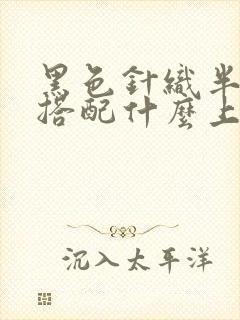 黑色針織半
搭配什麼上
沉入太平洋